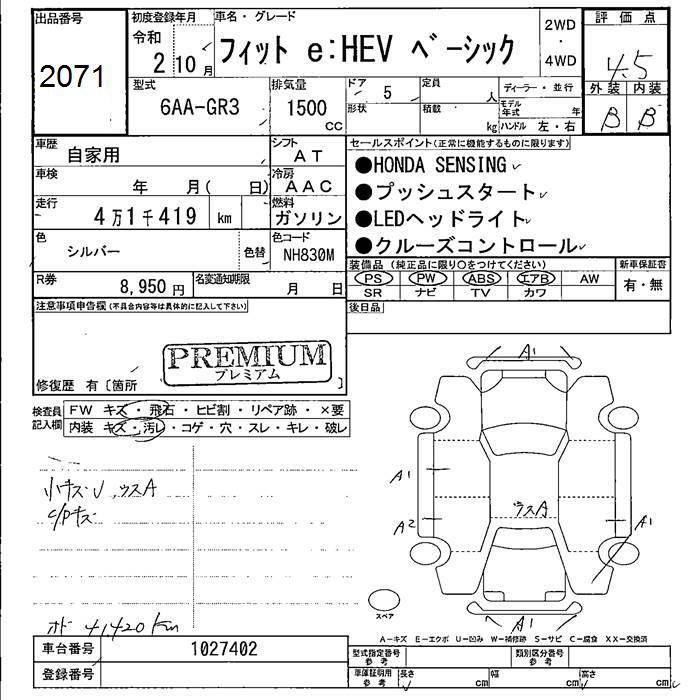 出品番号
2071
初度登録年月
令和
2年10月
車名・グレード
フィット e:HEV ベーシック
2WD
・
4WD
評価点
4.5
外装 内装
B B
型式
6AA-GR3
排気量
1500
cc
ドア
5
形状
定員
人
積載
kg
ディーラー・並行
モデル年式 年
ハンドル 左・右
車歴
自家用
シフト
AT
車検
年 月( 日)
冷房
AAC
走行
4万1千419 km
燃料
ガソリン
色
シルバー
色替
色コード
NH830M
R券
8,950円
名変通知期限
月 日
セールスポイント(正常に機能するものに限ります)
●HONDA SENSING
●プッシュスタート
●LEDヘッドライト
●クルーズコントロール
装備品(純正品に限り○をつけてください)
PS PW ABS エアB AW
SR ナビ TV カワ
新車保証書
有・無
後日品
注意事項申告欄(不具合内容等は具体的に記入して下さい)
PREMIUM
プレミアム
修復歴 有〔箇所 〕
検査員記入欄
FW キズ・飛石・ヒビ割・リペア跡・×要
内装 キズ・汚レ・コゲ・穴・スレ・キレ・破レ
小キズU,ウスA
C/Pキズ
オド 41,420km
A1
A1
A2
ウスA
A1
A1
スペア
A−キズ E−エクボ U−凹み W−補修跡 S−サビ C−腐食 XX−交換済
車台番号
1027402
登録番号
型式指定番号
参考
類別区分番号
参考
車庫証明用
参考
長さ cm
幅 cm
高さ cm